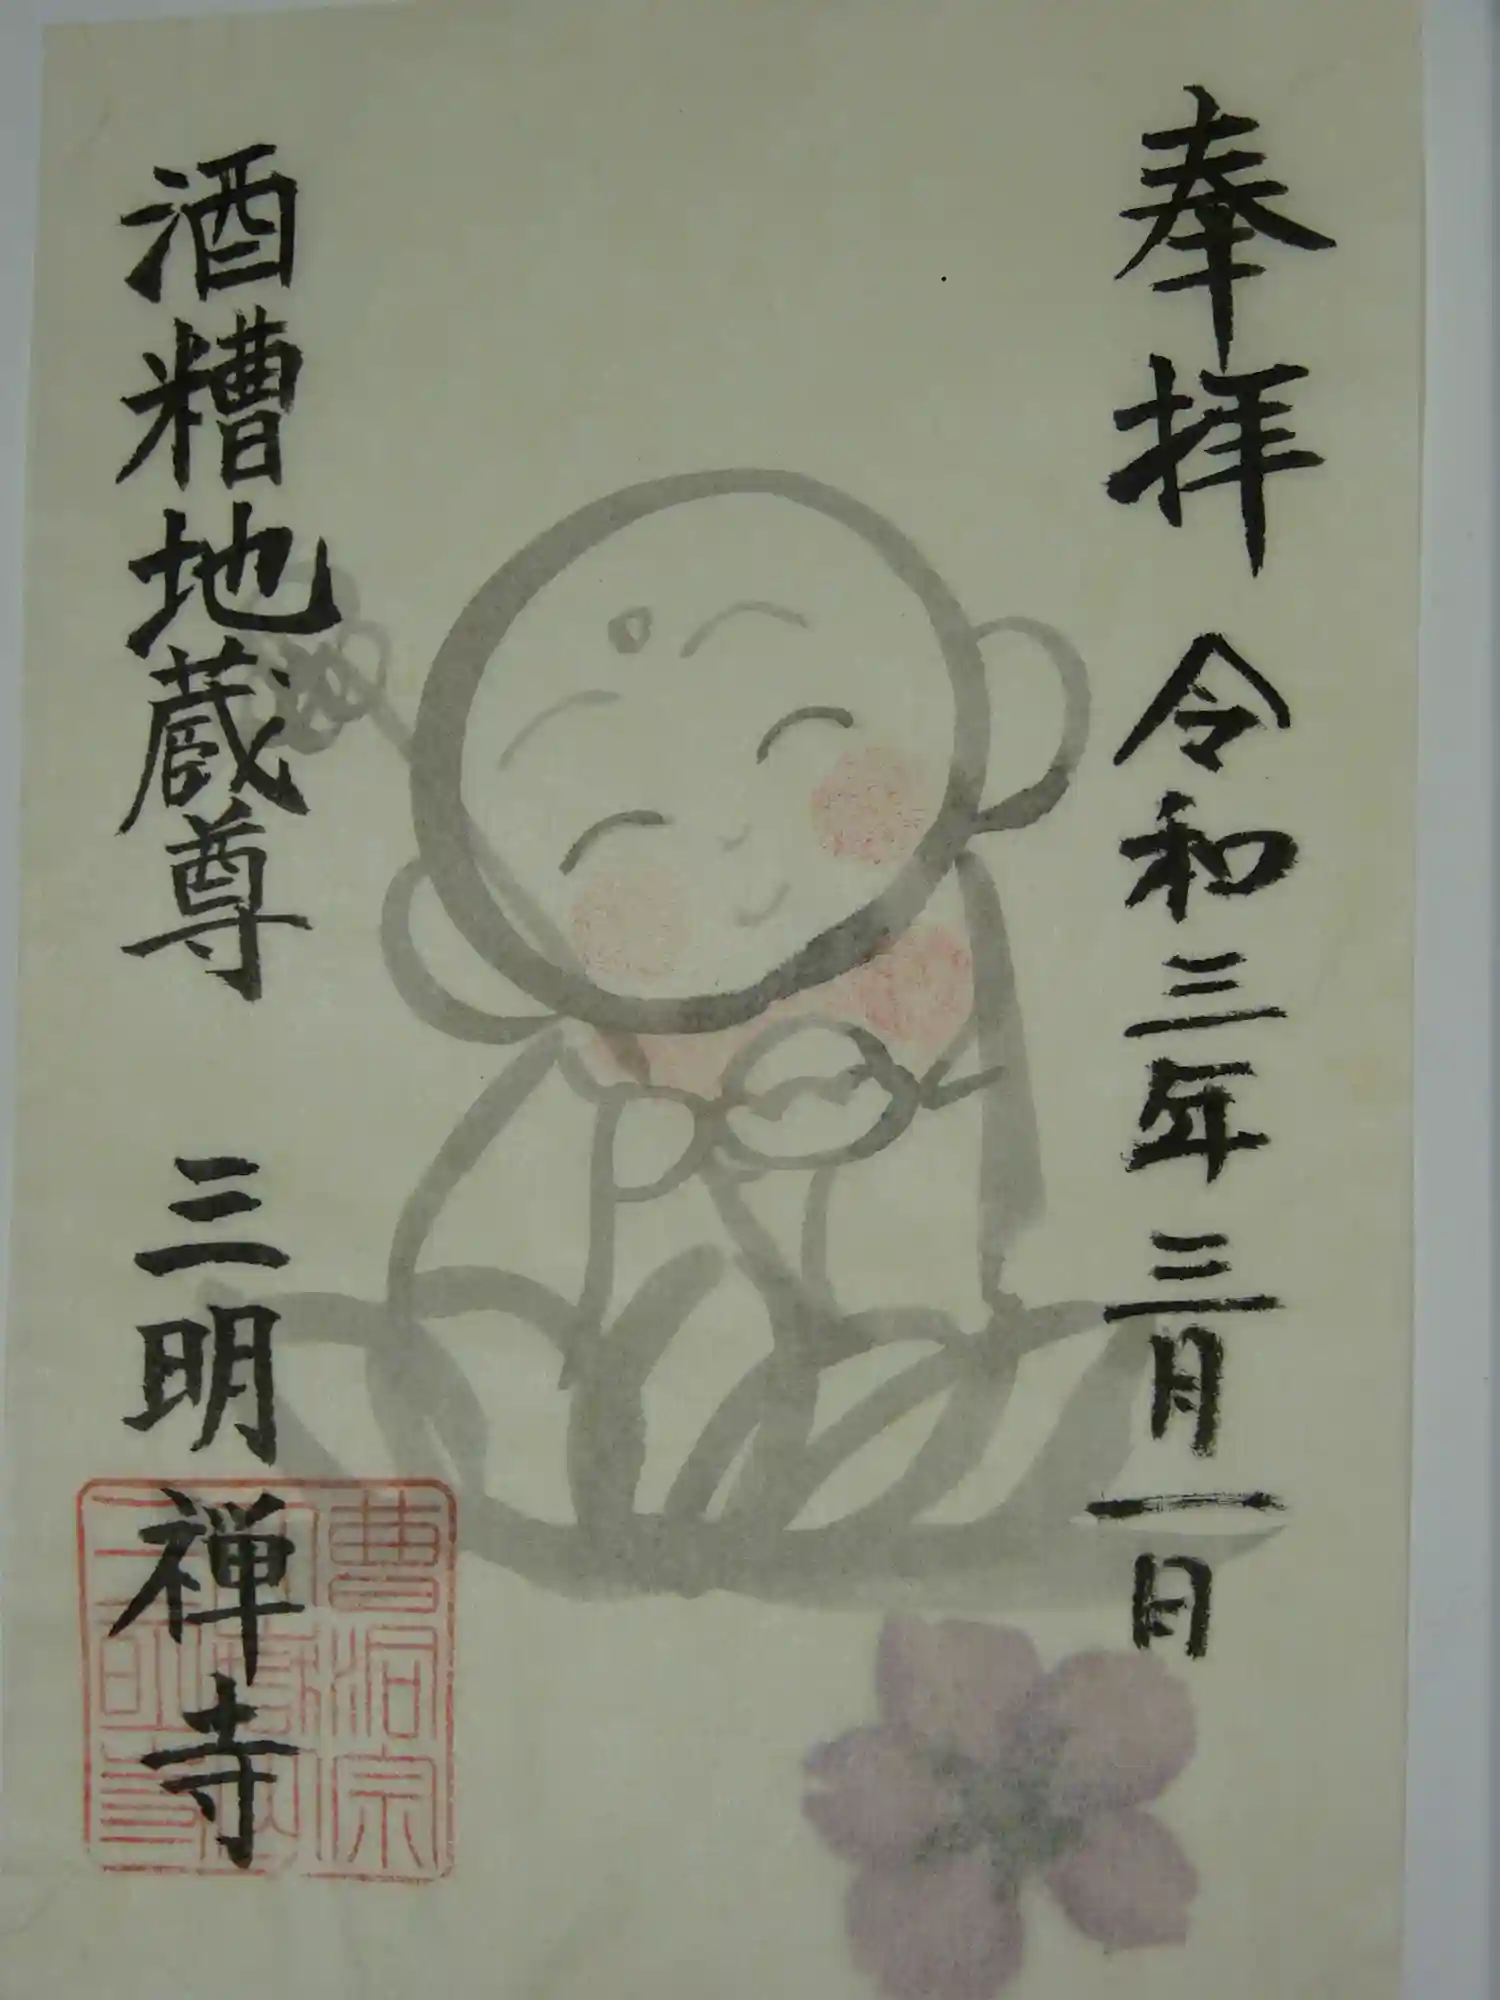 奉拝 令和三年三月一日
酒糟地蔵尊 三明禅寺
曹洞宗